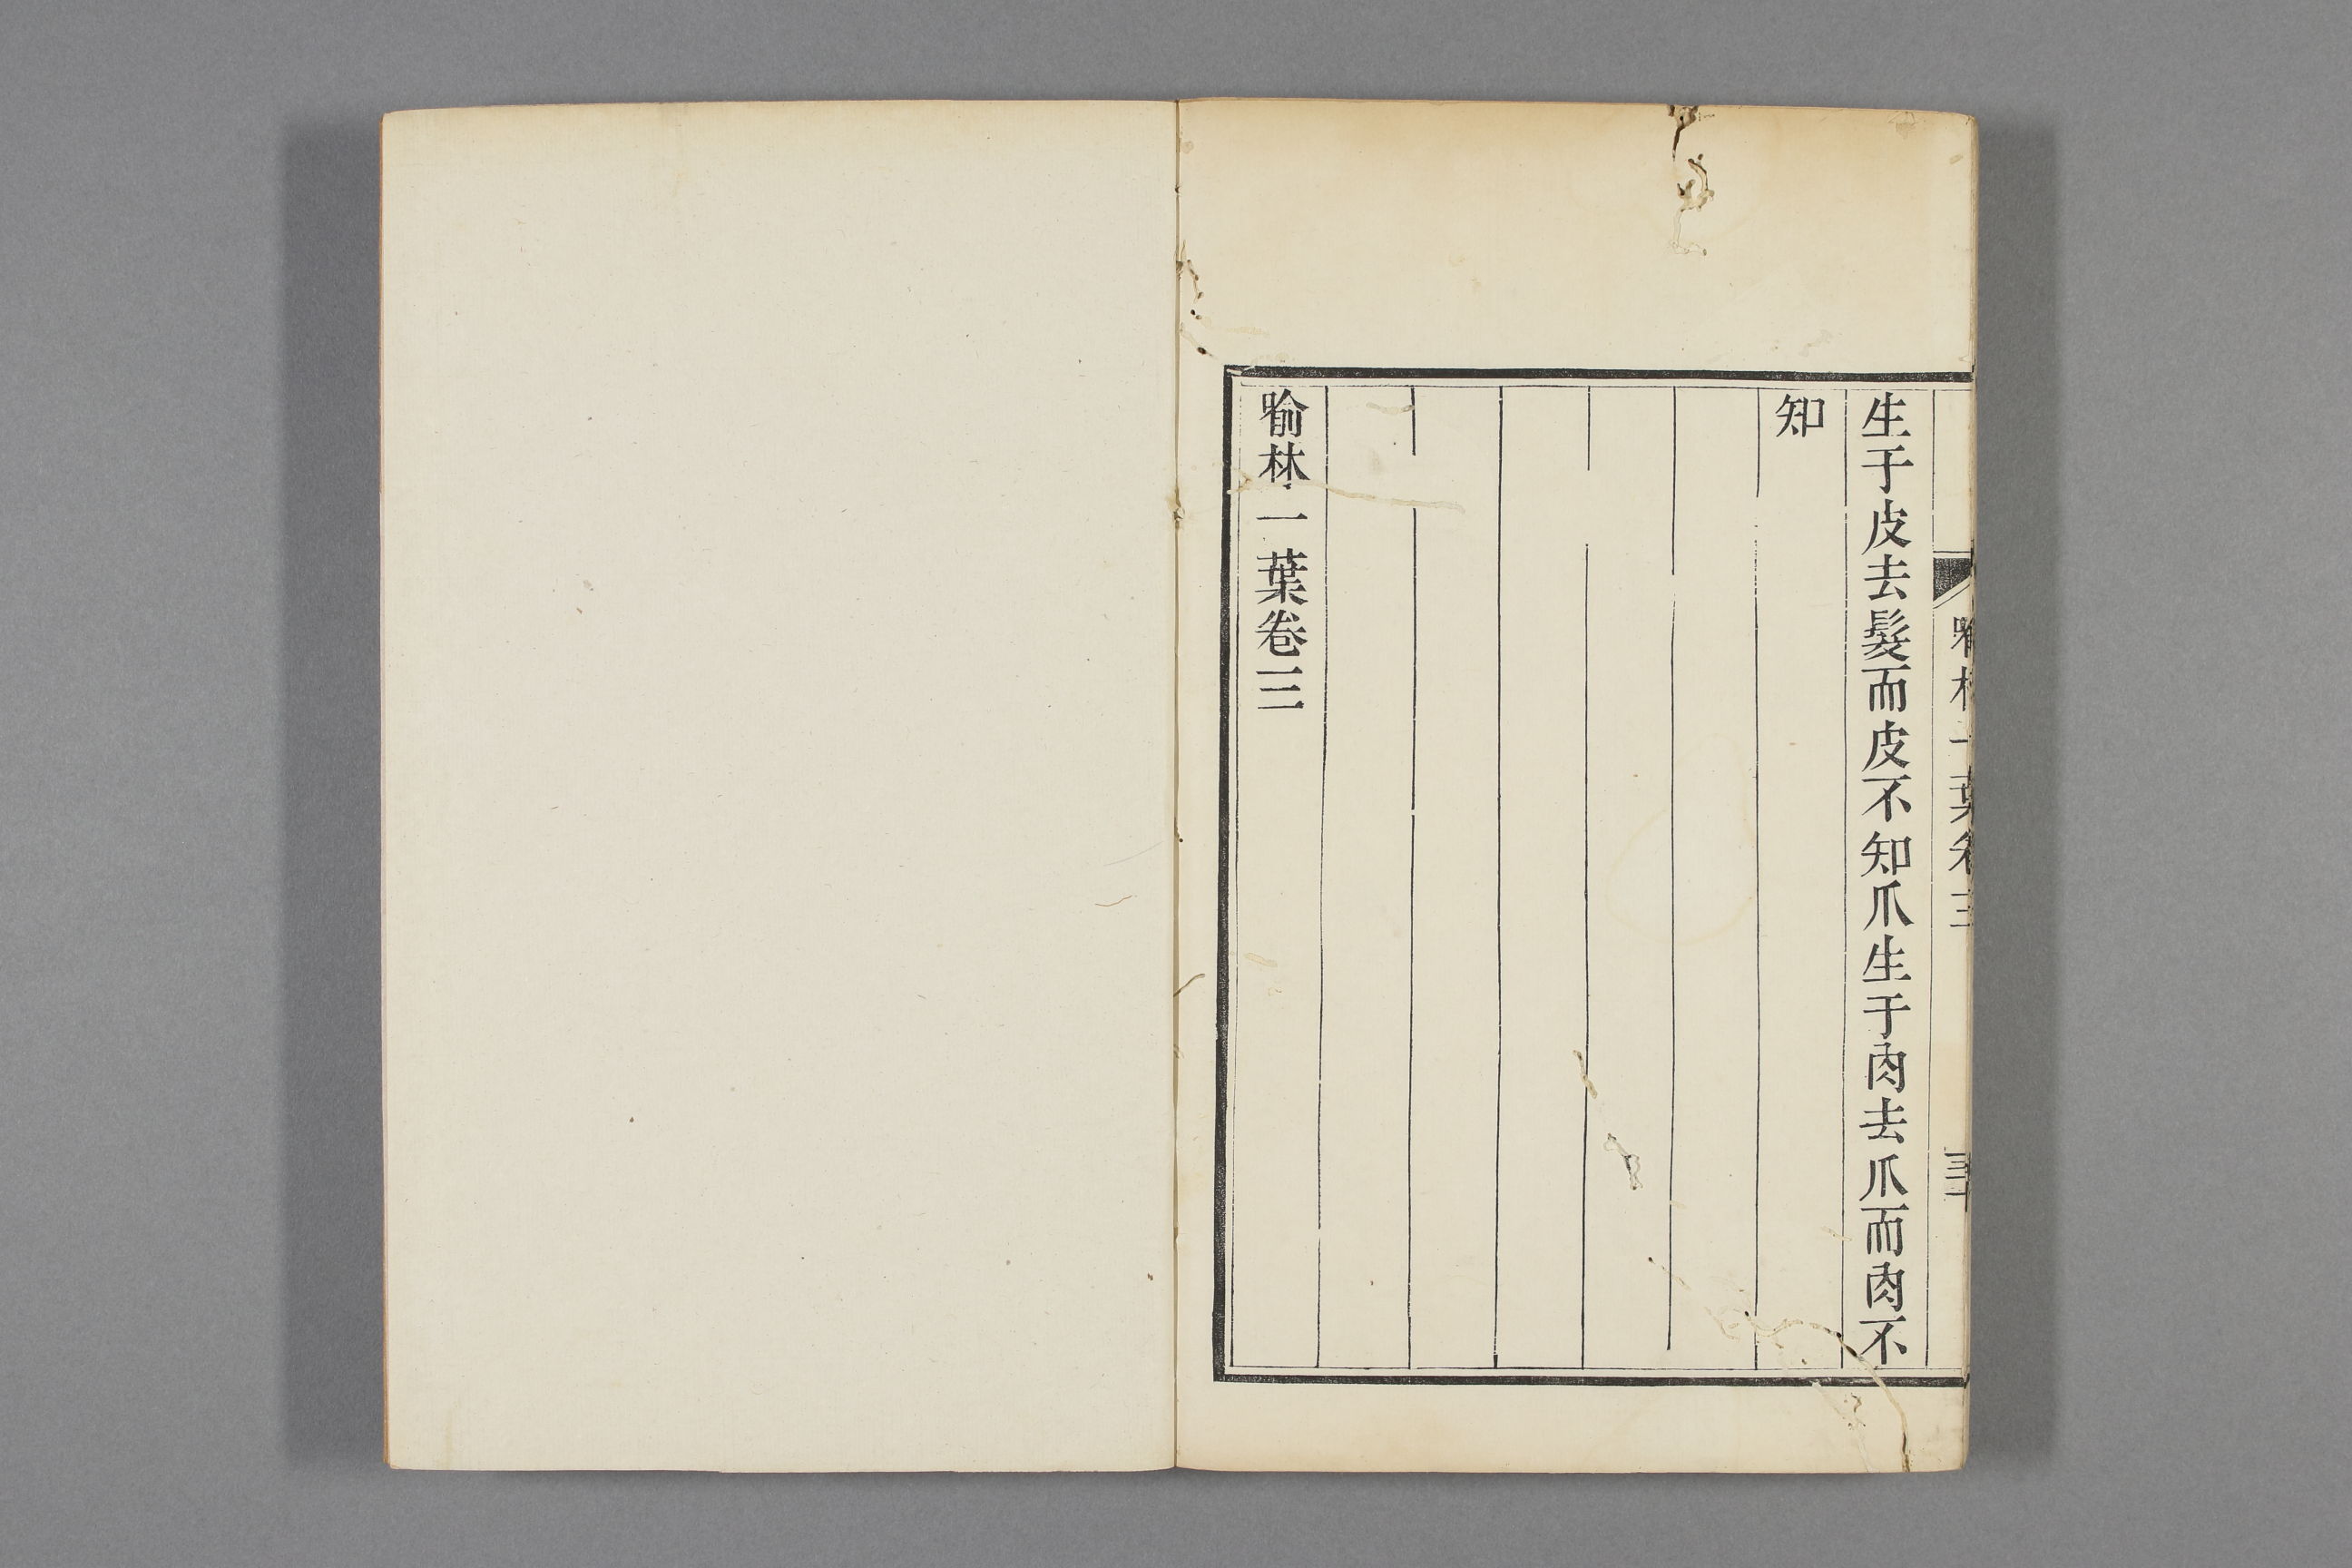 喻林一葉卷三
三十
生于皮去髮而皮不知爪生于肉去爪而肉不
知
喻林一葉卷三